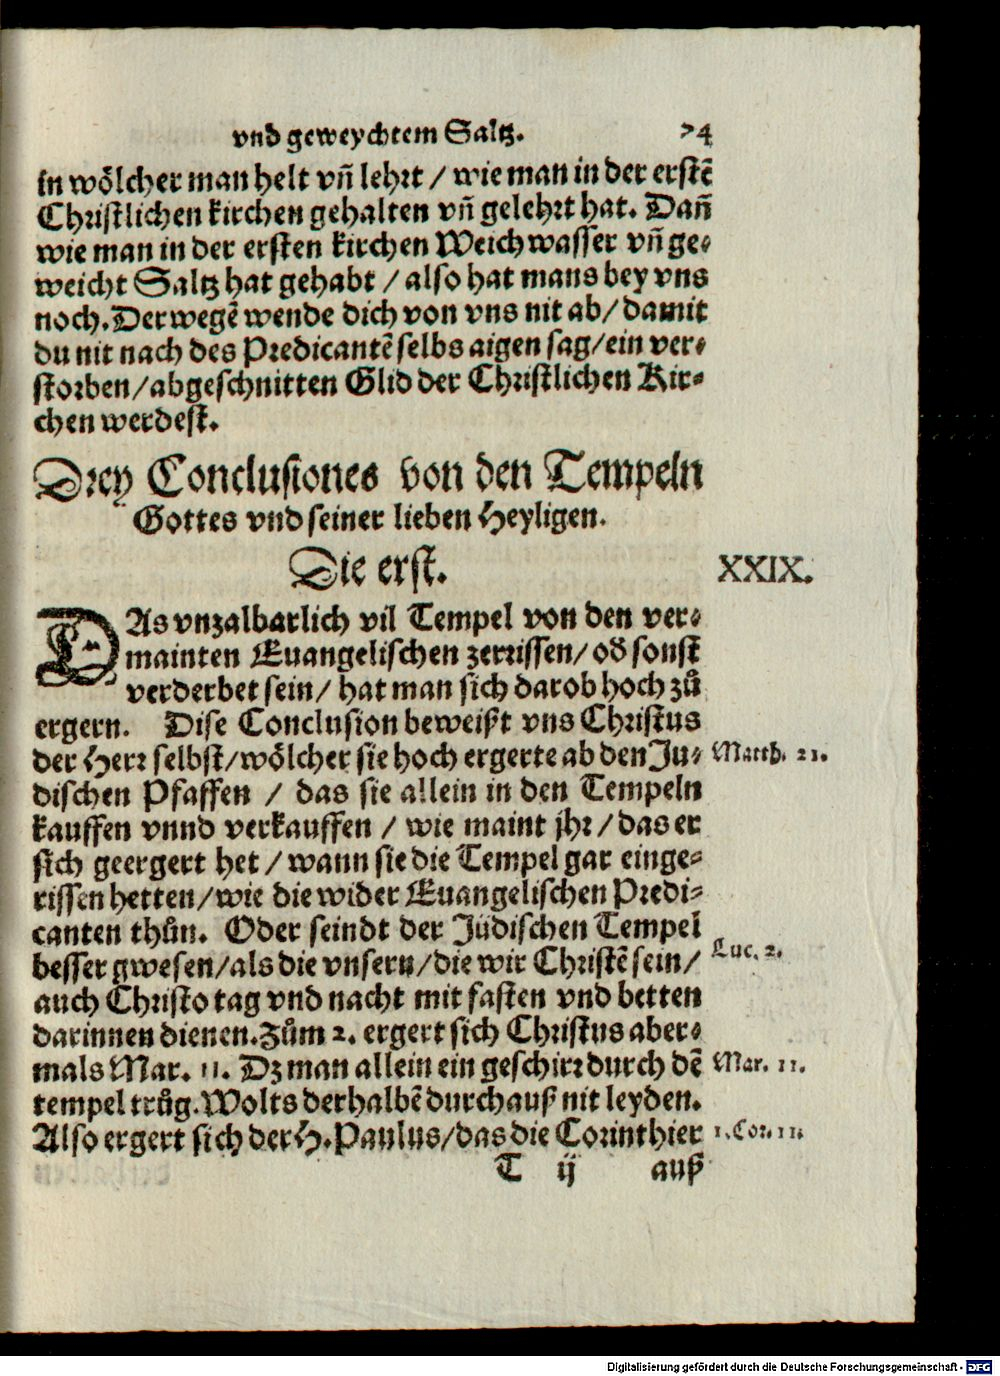 vnd geweychtem Saltz. 74
in wölcher man helt vñ lehrt / wie man in der erstẽ
Christlichen kirchen gehalten vñ gelehrt hat. Dañ
wie man in der ersten kirchen Weichwasser vñ ge-
weicht Saltz hat gehabt / also hat mans bey vns
noch. Derwegẽ wende dich von vns nit ab / damit
du nit nach des Predicantẽ selbs aigen sag / ein ver-
storben / abgeschnitten Glid der Christlichen Kir-
chen werdest.
Drey Conclusiones von den Tempeln
Gottes vnd seiner lieben Heyligen.
Die erst. XXIX.
DAs vnzalbarlich vil Tempel von den ver-
mainten Euangelischen zerrissen / od̃ sonst
verderbet sein / hat man sich darob hoch zů
ergern. Dise Conclusion beweißt vns Christus
der Herr selbst / wölcher sie hoch ergerte ab den Ju- Matth. 21.
dischen Pfaffen / das sie allein in den Tempeln
kauffen vnnd verkauffen / wie maint jhr / das er
sich geergert het / wann sie die Tempel gar einge-
rissen hetten / wie die wider Euangelischen Predi-
canten thůn. Oder seindt der Jüdischen Tempel
besser gwesen / als die vnsern / die wir Christẽ sein / Luc. 2.
auch Christo tag vnd nacht mit fasten vnd betten
darinnen dienen. Zům 2. ergert sich Christus aber-
mals Mar. 11. Dz man allein ein geschirr durch dẽ Mar. 11.
tempel trůg. Wolts derhalbẽ durchauß nit leyden.
Also ergert sich der H. Paulus / das die Corinthier 1. Cor. 11.
T ij auß
Digitalisierung gefördert durch die Deutsche Forschungsgemeinschaft - DFG